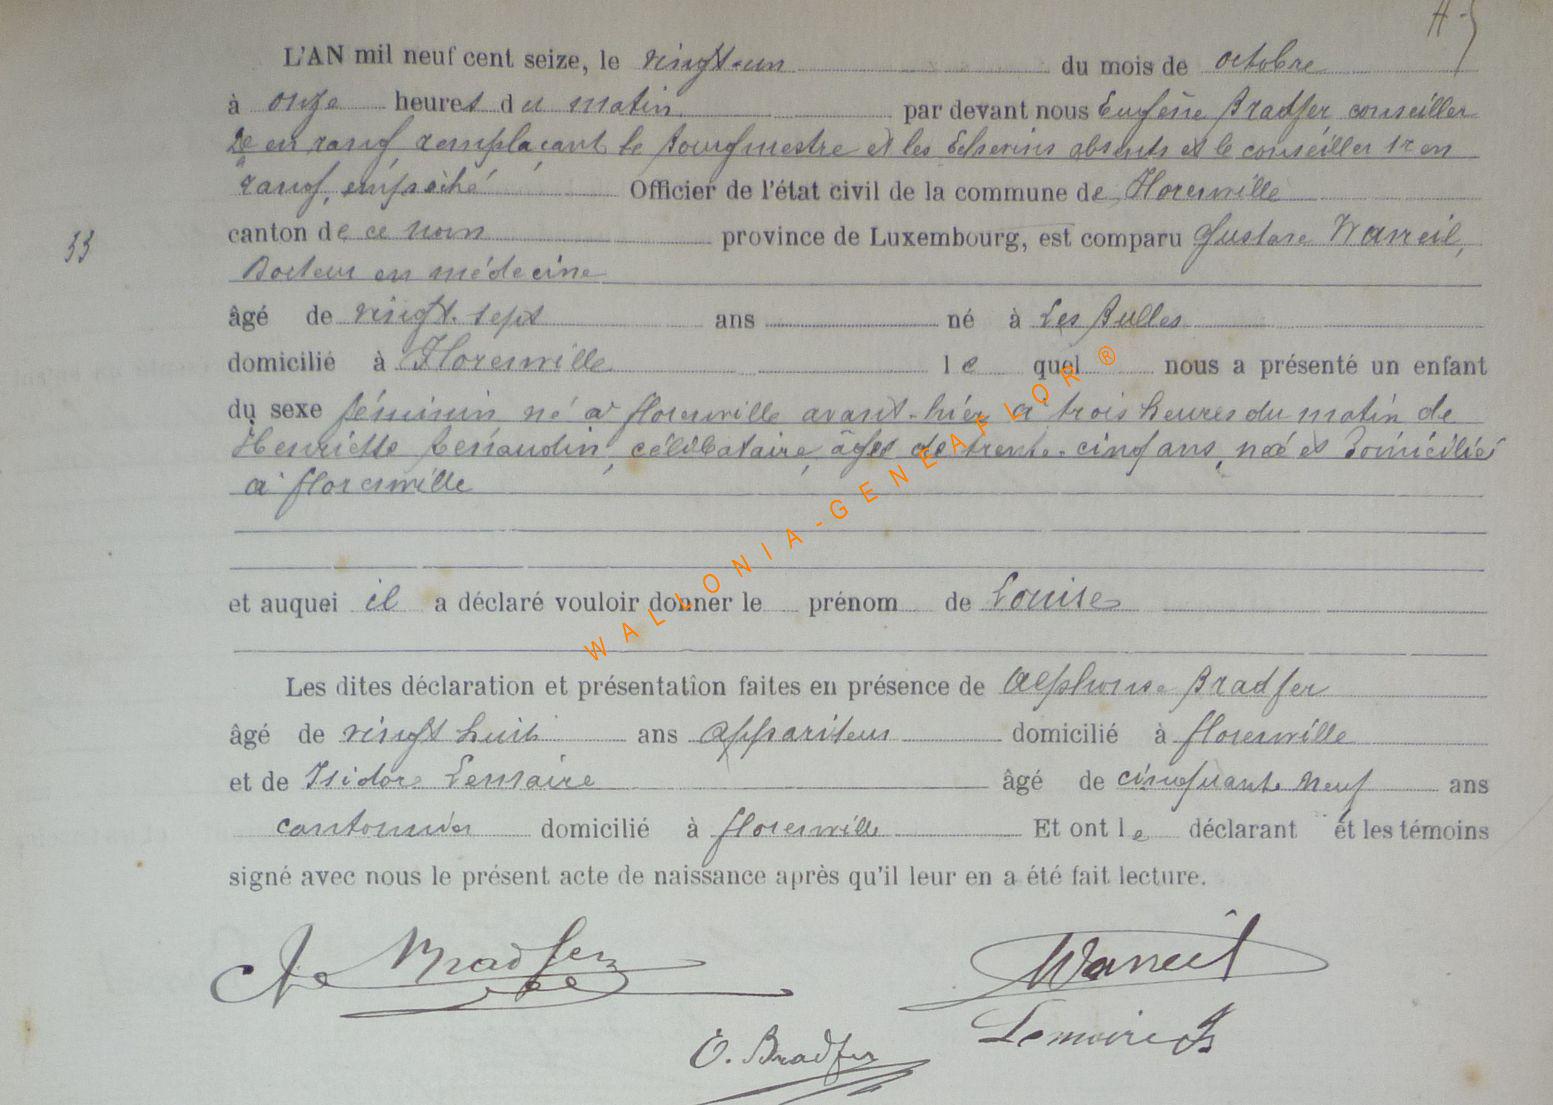 L'AN mil neuf cent seize, le vingt-un du mois de octobre
à onze heures du matin par devant nous Eugène Bradfer conseiller
2e en rang remplaçant le Bourgmestre et les Echevins absents et le conseiller 1r en
rang, empêché Officier de l'état civil de la commune de Florenville
33
canton de ce nom province de Luxembourg, est comparu Gustave Waneil,
Docteur en médecine
âgé de vingt-sept ans né à Les Bulles
domicilié à Florenville le quel nous a présenté un enfant
du sexe féminin né à Florenville avant-hier à trois heures du matin de
Henriette célibataire, âgée de trente-cinq ans, née et domiciliée
à Florenville
et auquel il a déclaré vouloir donner le prénom de Louise
Les dites déclaration et présentation faites en présence de Alphonse Bradfer
âgé de vingt huit ans appariteur domicilié à Florenville
et de Isidore Lemaire âgé de cinquante neuf ans
cantonnier domicilié à Florenville Et ont le déclarant et les témoins
signé avec nous le présent acte de naissance après qu'il leur en a été fait lecture.
Bradfer Waneil
Lemaire Is
E. Bradfer
WALLONIA-GENEAFLOR ®